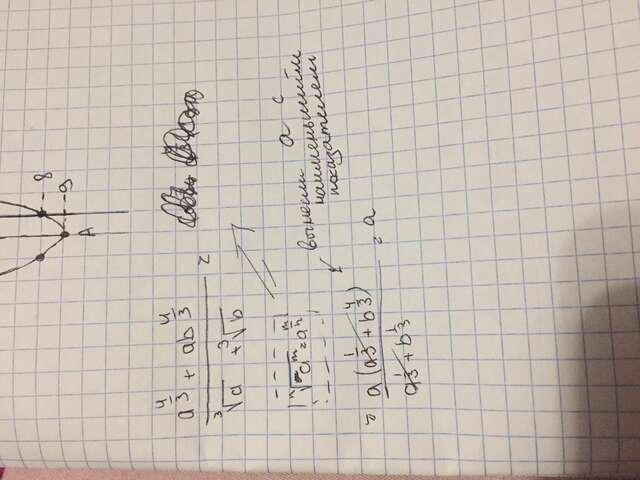 - 8
- 9
A
a^(4/3) + ab^(4/3)
/ (∛a + ∛b) =
ⁿ√a^m = a^(m/n)
вынесли a с
наименьшим
показателем
= a (a^(1/3) + b^(4/3))
/ (a^(1/3) + b^(1/3)) = a